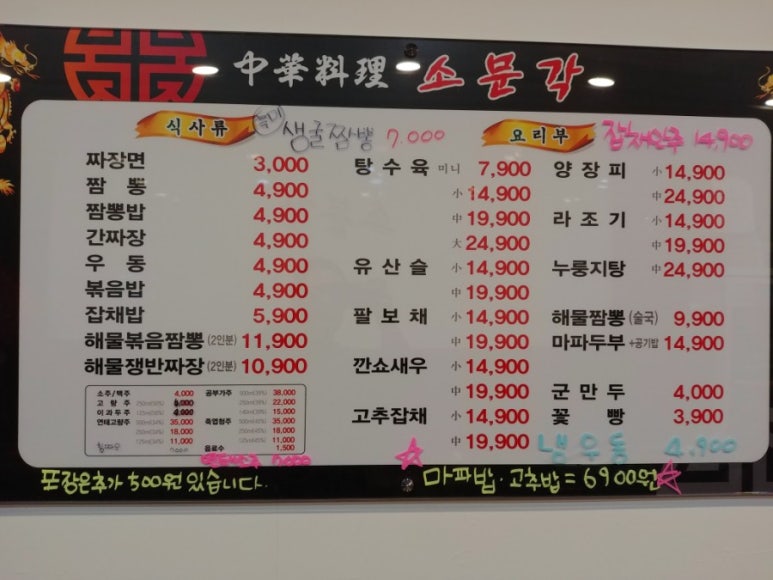 中華料理 소문각
식사류 생굴짬뽕 7.000 요리부 잡채안주 14,900
짜장면 3,000
짬뽕 4,900
짬뽕밥 4,900
간짜장 4,900
우동 4,900
볶음밥 4,900
잡채밥 5,900
해물볶음짬뽕 (2인분) 11,900
해물쟁반짜장 (2인분) 10,900
소주/맥주 4,000
고량주
이과두주
연태고량주 35,000
18,000
11,000
공부가주 38,000
22,000
15,000
죽엽청주 35,000
18,000
11,000
음료수 1,500
탕수육 미니 7,900
小 14,900
中 19,900
大 24,900
유산슬 小 14,900
中 19,900
팔보채 小 14,900
中 19,900
깐쇼새우 小 14,900
中 19,900
고추잡채 小 14,900
中 19,900
양장피 小 14,900
中 24,900
라조기 小 14,900
中 19,900
누룽지탕 中 24,900
해물짬뽕 (술국) 9,900
마파두부 +공기밥 14,900
군만두 4,000
꽃빵 3,900
냄우동 4.900
포장은추가 500원 있습니다.
마파밥·고추밥 = 6900원